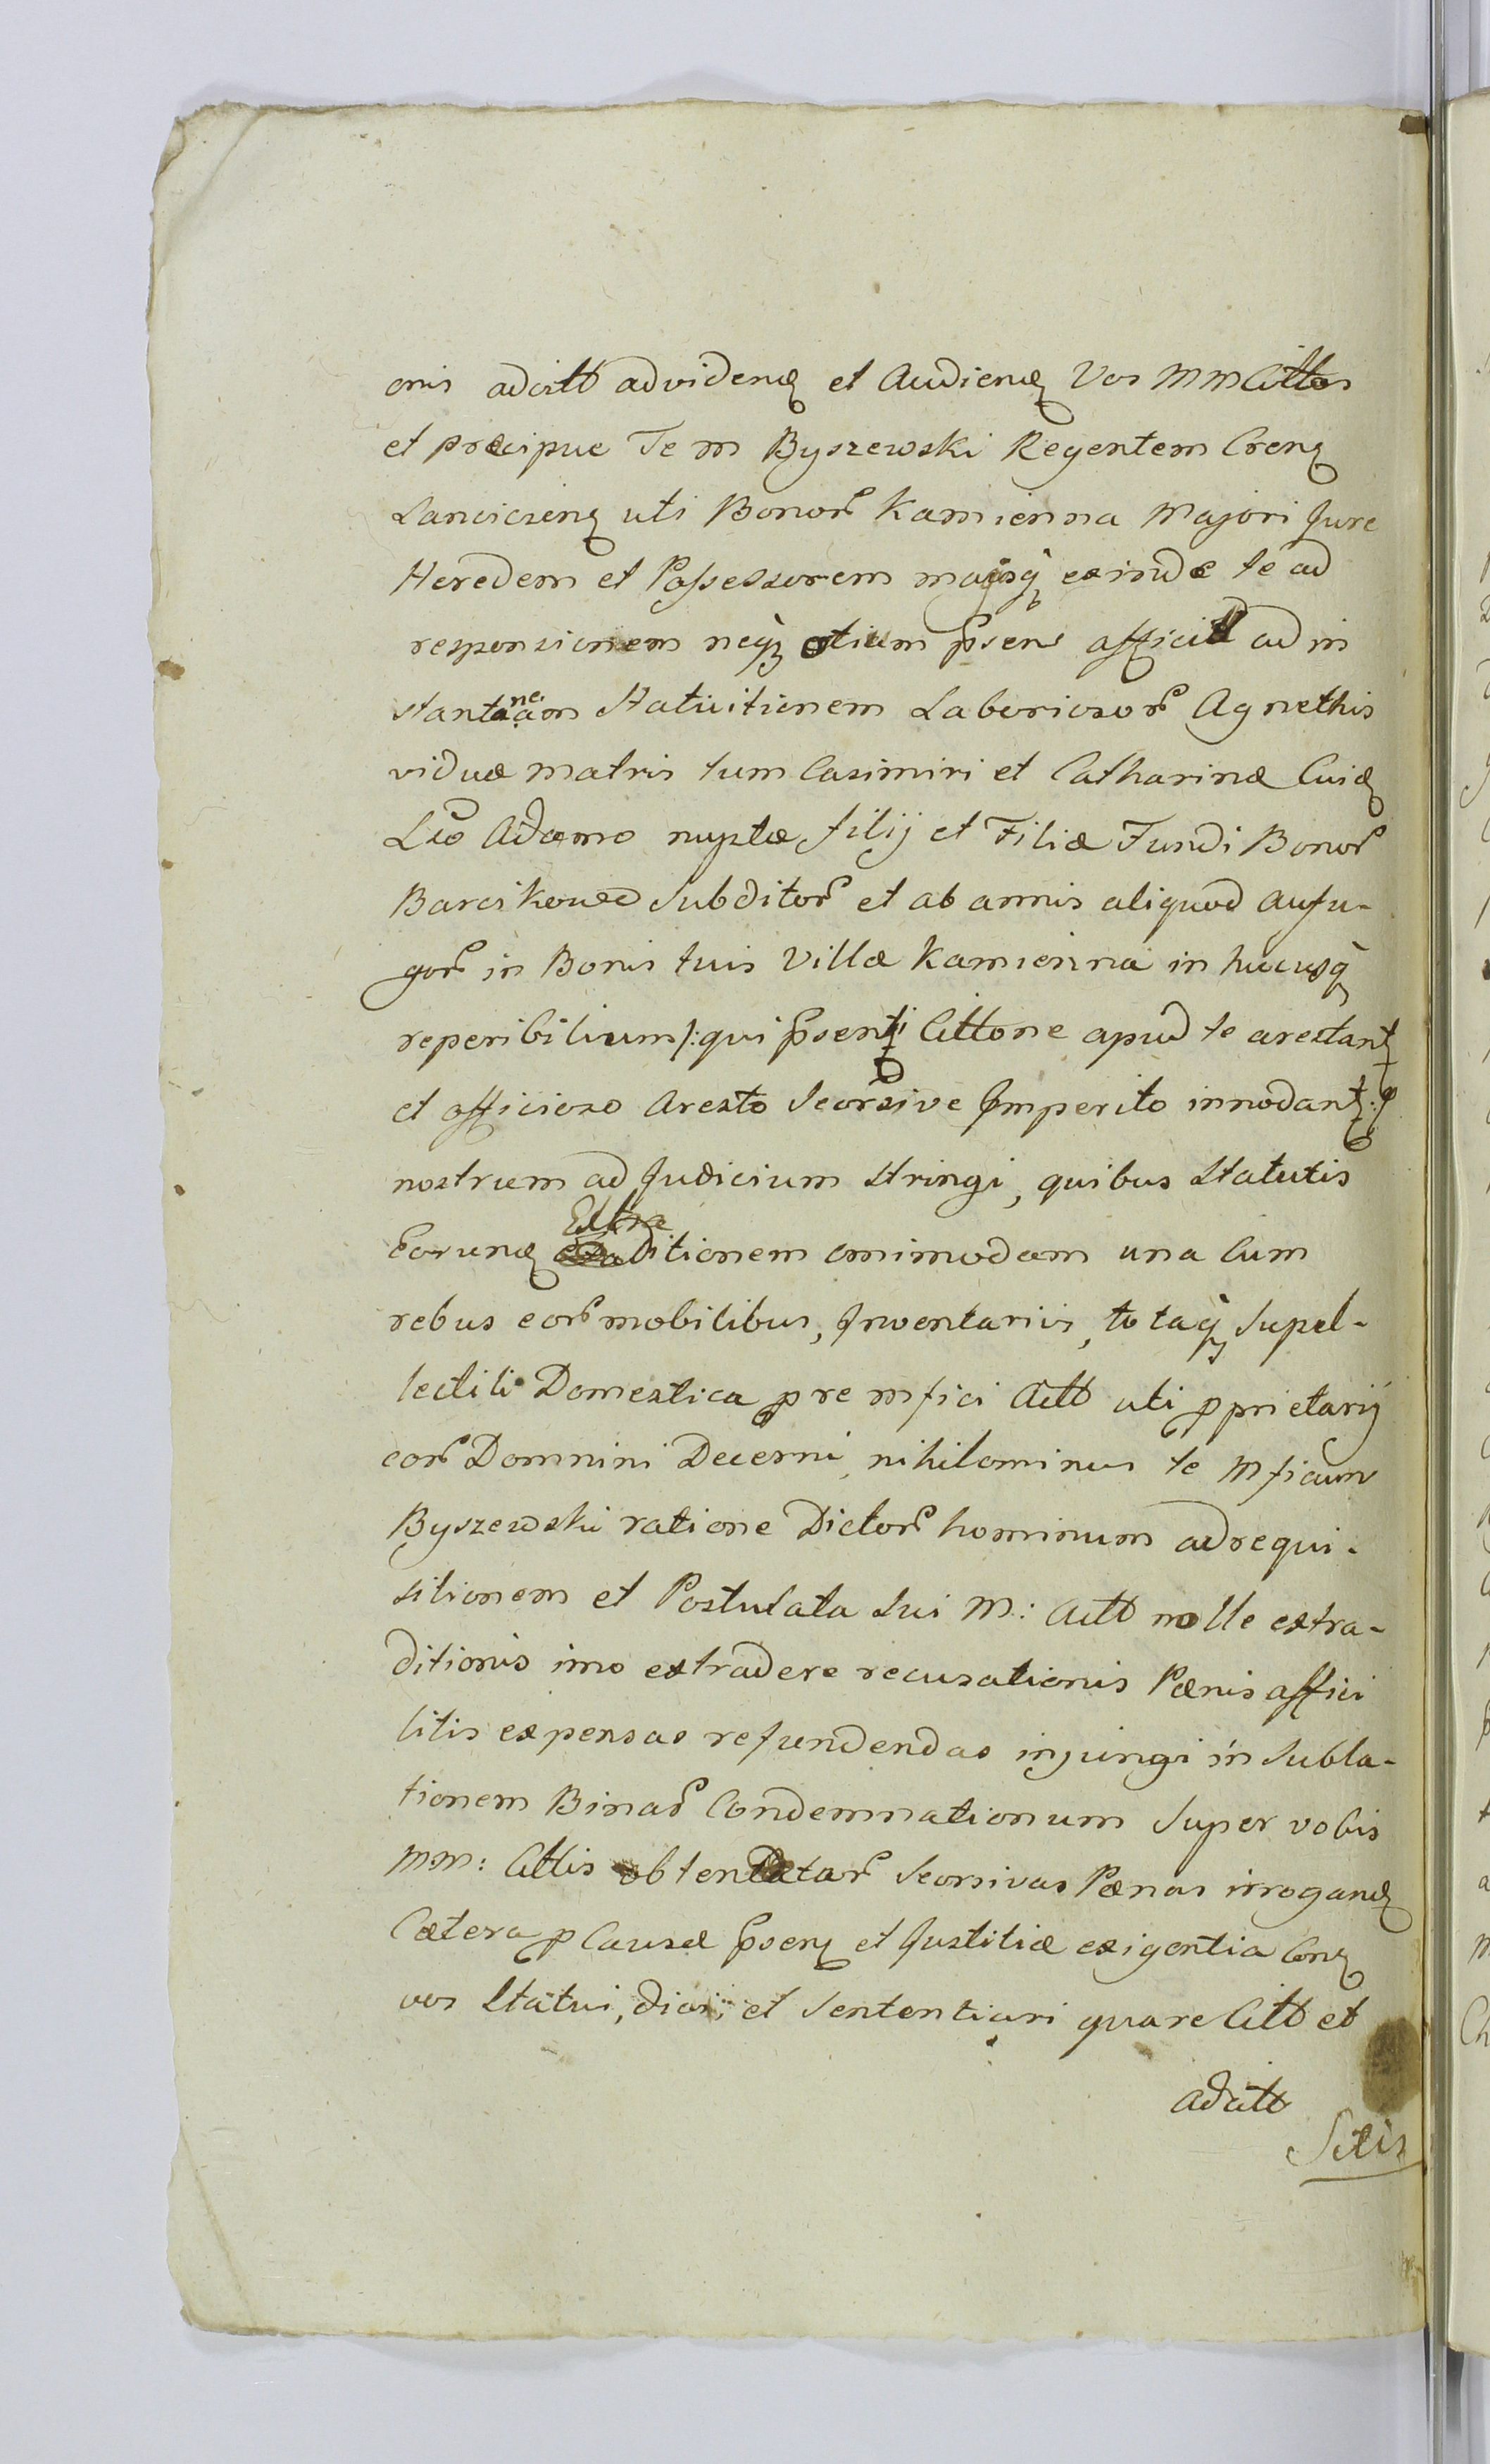 onis adcitt ad videnɖ et Audienɖ Vos MM Cittos
et præcipue Te M Byszewski Regentem Crenɖ
Lanciciens uti Bonor Kamienna Majori Jure
Heredem et Possessorem magisq exinde te ad
responsionem neq otium psens afficiat ad in
stantaneam Statuitionem Laboriosor Agnethis
viduæ matris tum Casimiri et Catharinæ Cuiɖ
Lio Adamo nuptæ filij et Filiæ Fundi Bonor
Barcikowo Subditor et ab annis aliquod aufu-
gor in Bonis tuis Villæ Kamienna in hucusq
reperibilium /: qui psenti Cittone apud te arestant
et officioso Aresto Seorsive Imperito innodant :/
nostrum ad Judicium stringi, quibus Statutis
Eorunɖ Extraditionem omnimodam una Cum
rebus eor mobilibus, Inventariis, totaq Supel-
lectili Domestica p re mfici Actt uti pprietarij
eor Domnini Decerni nihilominus te Mficum
Byszewski ratione Dictor hominum ad requi-
sitionem et Postulata Sui M: Actt nolle extra-
ditionis imo extradere recusationis Pænis affici
litis expensas refundendas injungi in Subla-
tionem Binar Condemnationum Super vobis
MM: Cittis obtentar Seorsivas Pænas irroganɖ
Cætera p Causæ psenɖ et Justitiæ exigentia Conɖ
vos Statui, dici, et Sententiari quare Citt et
adcitt
Sitis